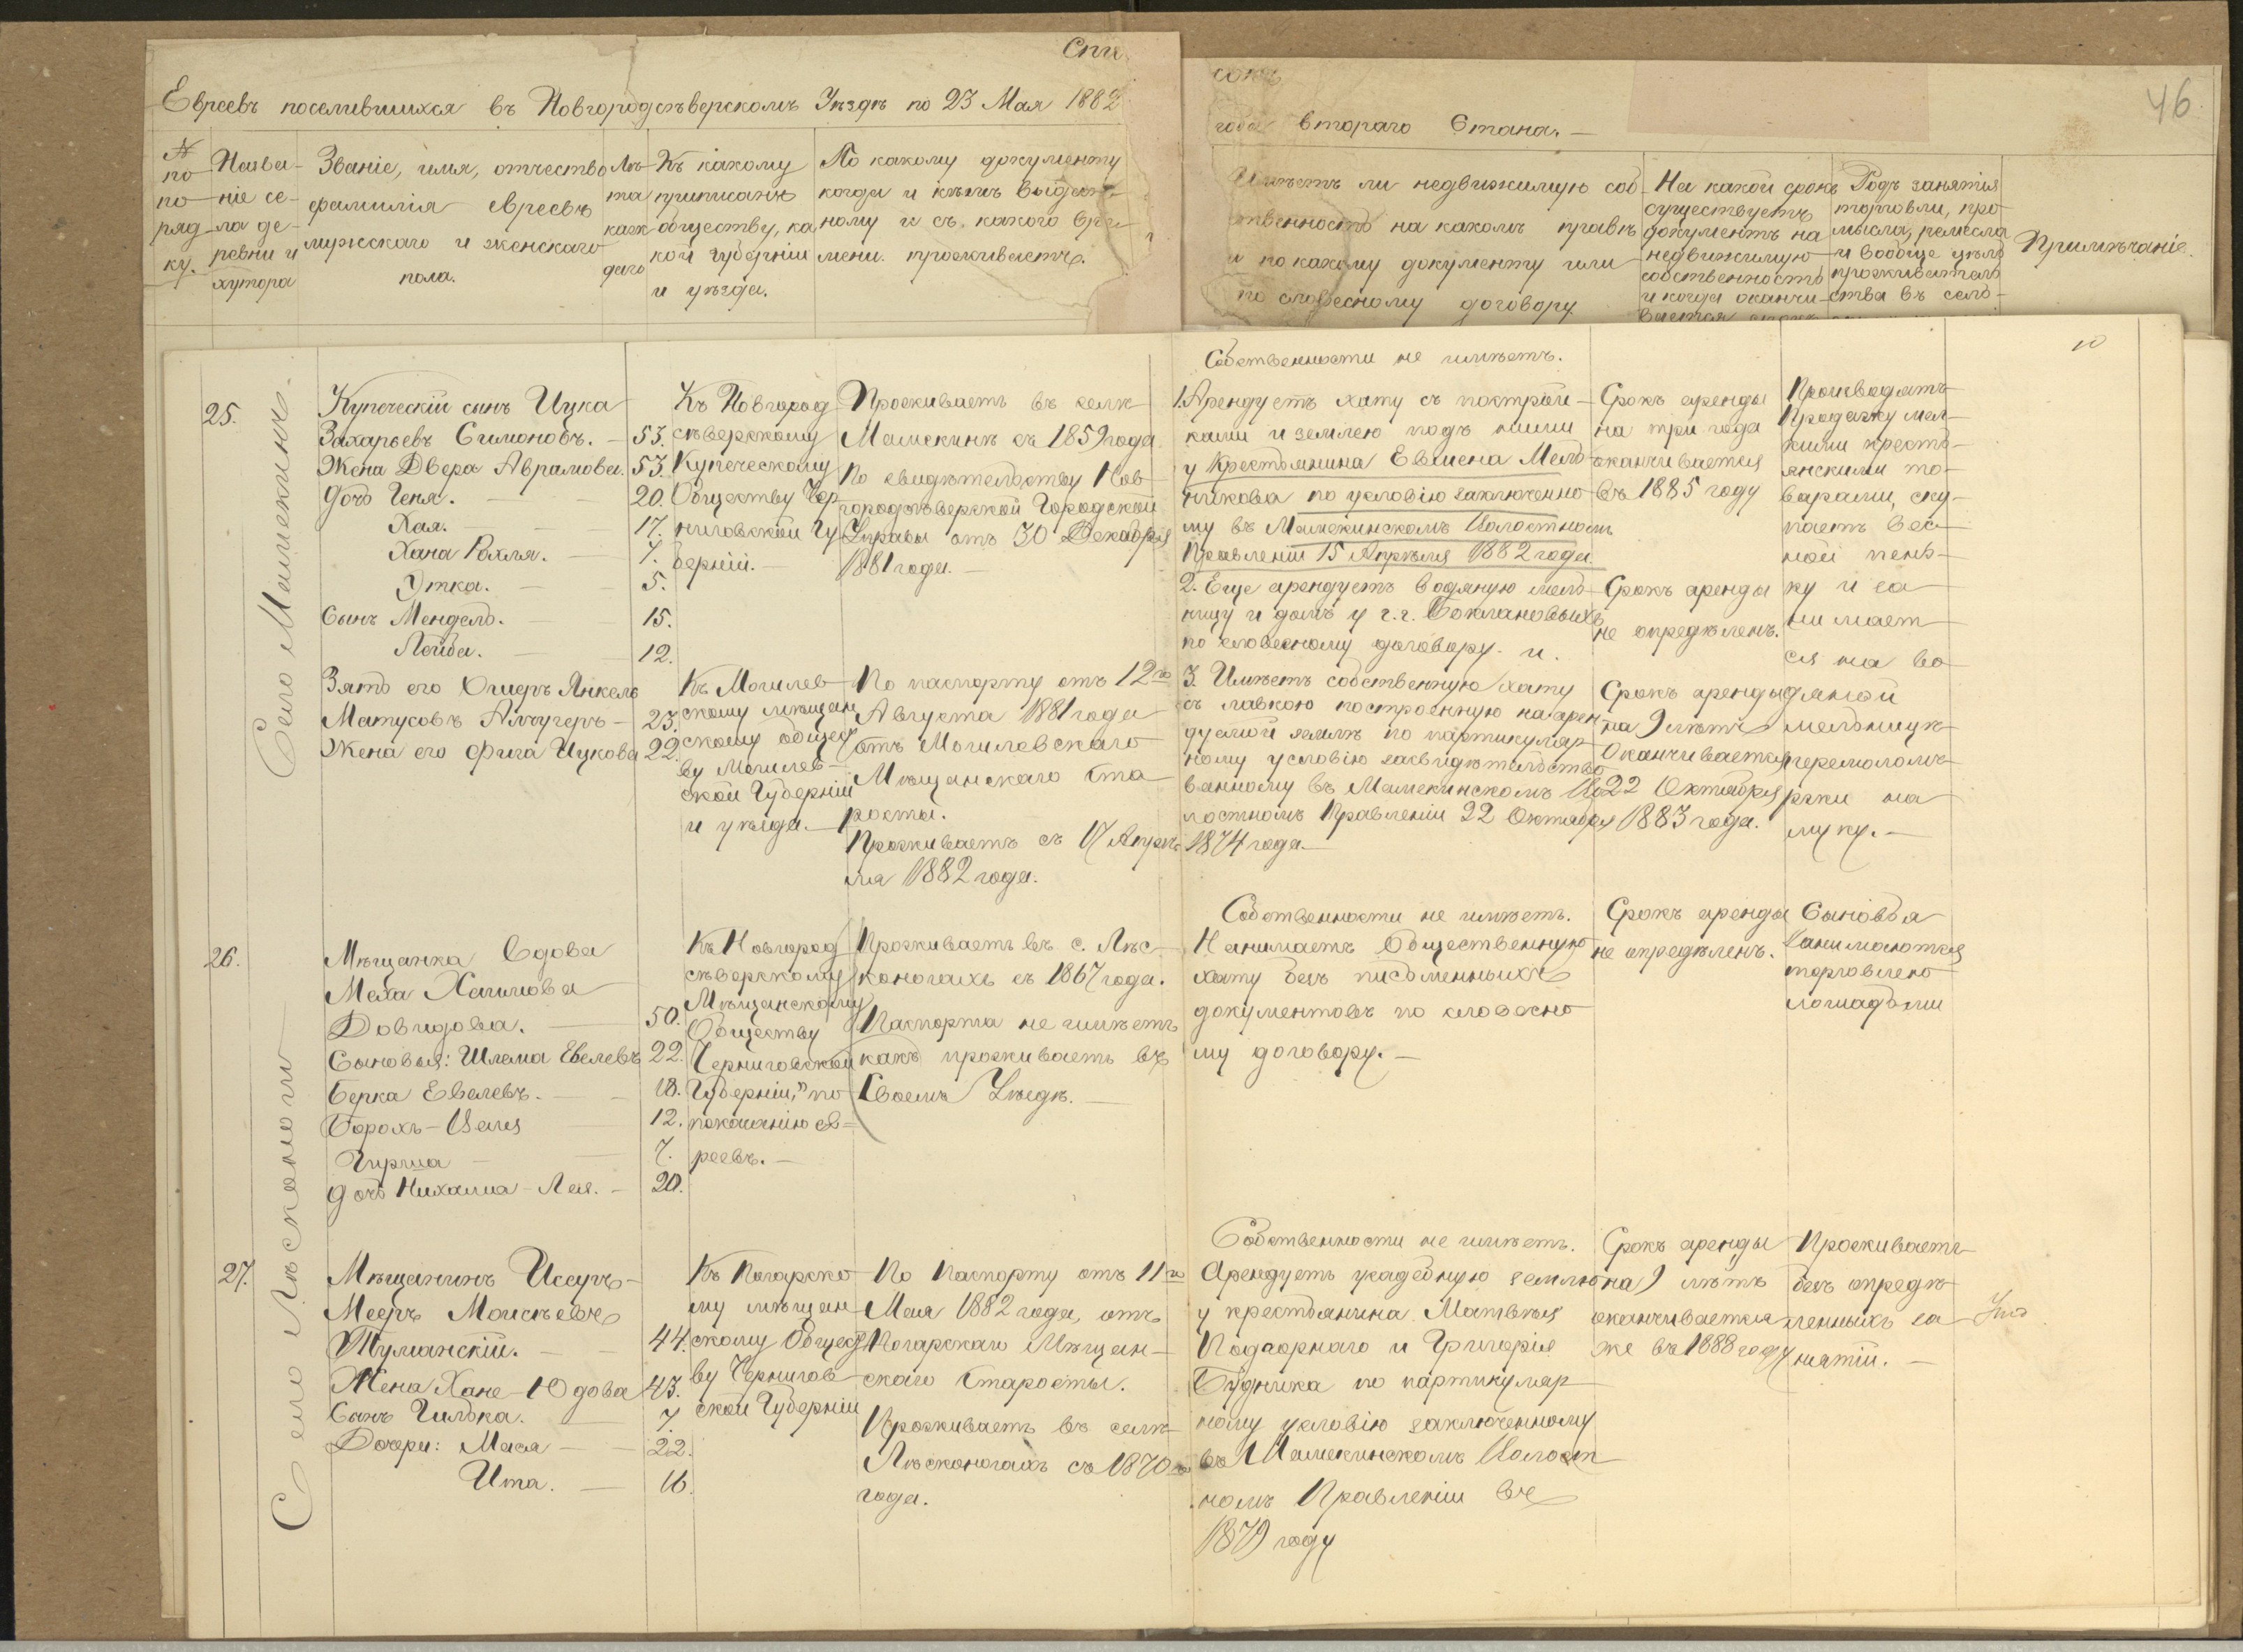 Спи
сокъ
46.
Евреевъ поселившихся въ Новгородсѣверскомъ Уѣздѣ по 23 Мая 1882
года втораго Стана. —
№ по по ряд ку.
Назва-
ніе се-
ла де-
ревни и
хутора
Званіе, имя, отчество
фамилія евреевъ
мужскаго и женскаго
пола.
Лѣ-
та
каж
даго
Къ какому
приписанъ
обществу, ка
кой губерніи
и уѣзда.
По какому документу
когда и кѣмъ выдан-
ному и съ какого вре-
мени проживаетъ.
Имѣетъ ли недвижимую соб-
ственность на какомъ правѣ
и по какому документу или
по словесному договору
На какой срокъ
существуетъ
документъ на
недвижимую
собственность
и когда оканчи-
вается срокъ
Родъ занятія
торговли, про
мысла, ремесла
и вообще цѣль
прожиматель
ства въ селѣ-
Примѣчаніе.
10
25.
Село Машекинъ.
Купеческій сынъ Ицка
Захарьевъ Симоновъ. — 53.
Жена Двера Аврамова. 53.
Дочь Геня. — 20.
Хая. — 17.
Хана Рохля. — 7.
Утка. — 5.
Сынъ Мендель. — 15.
Лейба. — 12.
Зять его Ошеръ Янкель
Матусовъ Алчугеръ — 23.
Жена его Фига Ицкова 22.
Къ Новгород
сѣверскому
Купеческому
Обществу Чер
ниговской Гу
берніи. —
Къ Могилев
скому мѣщан
скому общест
ву Могилев-
ской Губерніи
и уѣзда. —
Проживаетъ въ селѣ
Мамекинѣ съ 1859 года
По свидѣтельству Нов
городсѣверской Городской
Управы отъ 30 Декабря
1881 года. —
По паспорту отъ 12го
Августа 1881 года
отъ Могилевскаго
Мѣщанскаго Ста
росты.
Проживаетъ съ 17 Апрѣ
ля 1882 года.
Собственности не имѣетъ.
1. Арендуетъ хату съ построй-
ками и землею подъ ними
у Крестьянина Евмена Мель-
никова по условію заключенно-
му въ Мамекинскомъ Волостномъ
Правленіи 15 Апрѣля 1882 года.
2. Еще арендуетъ водяную мель-
ницу и домъ у г.г. Боклановыхъ
по словесному договору. и.
3. Имѣетъ собственную хату
съ лавкою построенную на арен
дуемой землѣ по партикуляр
ному условію засвидѣтельство
ванному въ Мамекинскомъ Во
лостномъ Правленіи 22 Октября
1874 года. —
Срокъ аренды
на три года
оканчивается
въ 1885 году
Срокъ аренды
не опредѣленъ.
Срокъ аренды
на 9 лѣтъ
Оканчивается
22 Октября
1883 года.
Производятъ
Продажу мел-
кими кресть-
янскими то-
варами, ску-
паетъ вес-
ной пень-
ку и за
нимает
ся на во
дяной
мельницѣ
перемоломъ
ржи на
муку. —
26.
Село Лѣсконоги
Мѣщанка Вдова
Меха Хаимова
Довидова. — 50.
Сыновья: Шлема Евелевъ 22.
Берка Евелевъ. — 18.
Борохъ-Зелия 12.
Гирша — 7.
Дочь Нихама-Лея. — 20.
Къ Новгород
сѣверскому
Мѣщанскому
Обществу
Черниговской
Губерніи, по
показанію ев=
реевъ. —
Проживаетъ въ с. Лѣс-
коногахъ съ 1867 года.
Паспорта не имѣетъ
какъ проживаетъ въ
Своемъ Уѣздѣ. —
Собственности не имѣетъ.
Нанимаетъ Общественную
хату безъ письменныхъ
документовъ по словесно
му договору. —
Срокъ аренды
не опредѣленъ.
Сыновья
Занимаются
торговлею
лошадьми
27.
Мѣщанинъ Иссуръ-
Мееръ Моисѣевъ
Туманскій. — 44.
Жена Хане-Юдова 43.
Сынъ Гилька. 7.
Дочери: Мася — 22.
Ита. — 16.
Къ Погарско
му мѣщан
скому Общест
ву Чернигов
ской Губерніи
По Паспорту отъ 11го
Мая 1882 года, отъ
Погарскаго Мѣщан-
скаго Старосты.
Проживаетъ въ селѣ
Лѣсконогахъ съ 1870го
года.
Собственности не имѣетъ.
Арендуетъ усадебную землю
у крестьянина Матвѣя
Подгорнаго и Григорія
Будника по партикуляр
ному условію заключенному
въ Мамекинскомъ Волост
номъ Правленіи въ
1879 году
Срокъ аренды
на 9 лѣтъ
оканчивается
же въ 1888 году
Проживаетъ
безъ опредѣ
ленныхъ за
нятій. —